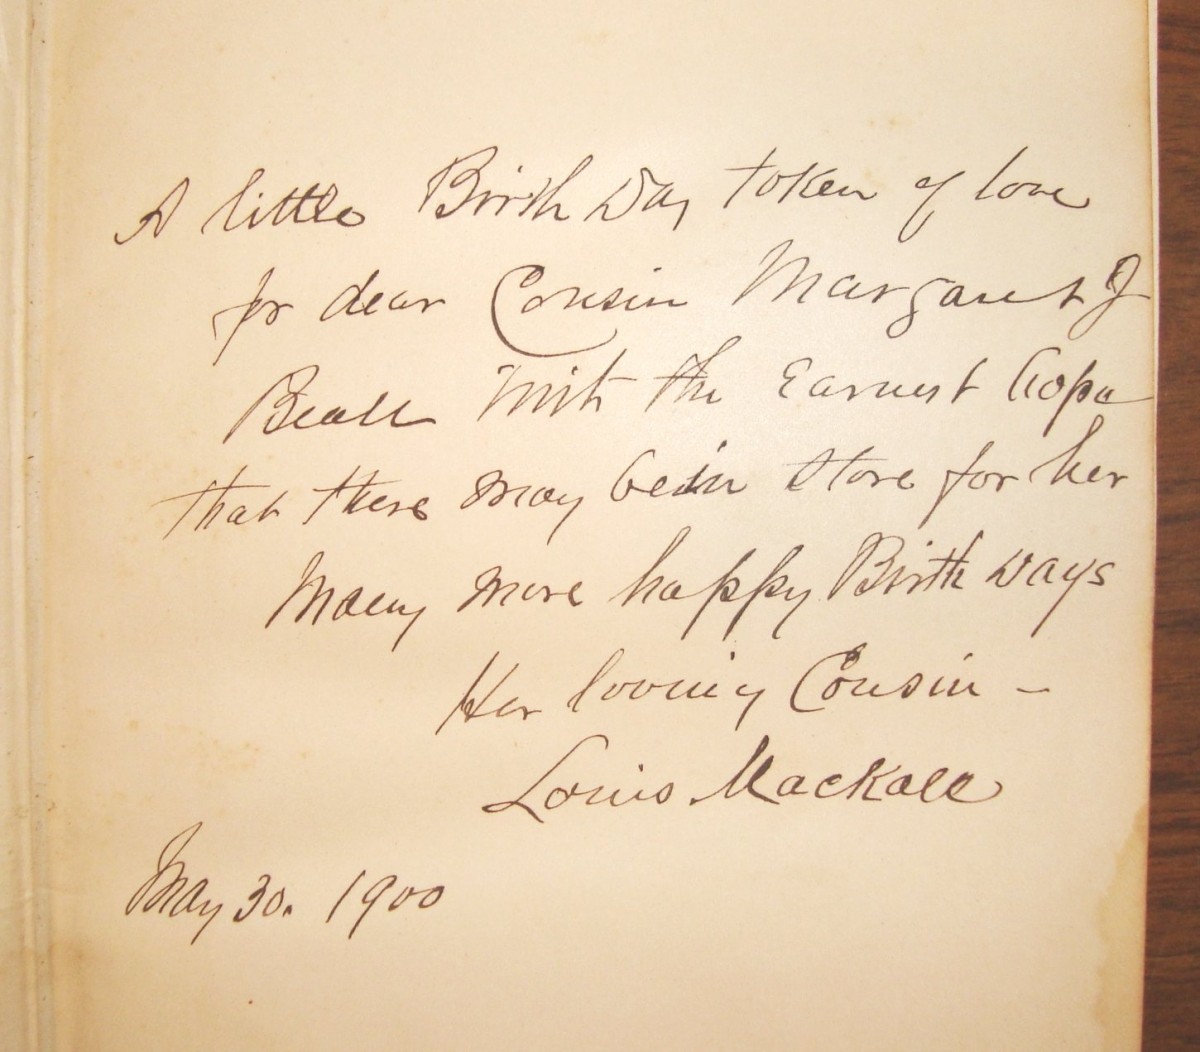 A little Birth Day token of love
for dear Cousin Margaret J
Beall with the Earnest hope
that there may be in store for her
Many more happy Birth Days
Her loving Cousin –
Louis Mackall
May 30. 1900